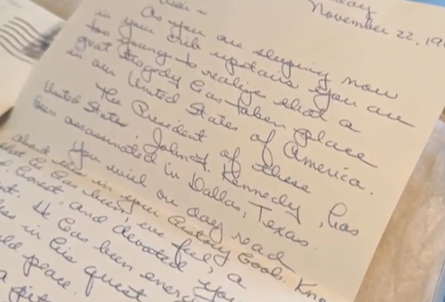 day
November 22, 19
As you are sleeping now
in your crib upstairs you are
too young to realize that a
great tragedy has taken place
in our United States of America.
The President of these
United States, John F. Kennedy, has
been assassinated in Dallas, Texas.
You will one day read
about in your history book. Kno
he has been
honest and devoted
He has been
in his quest
peace.